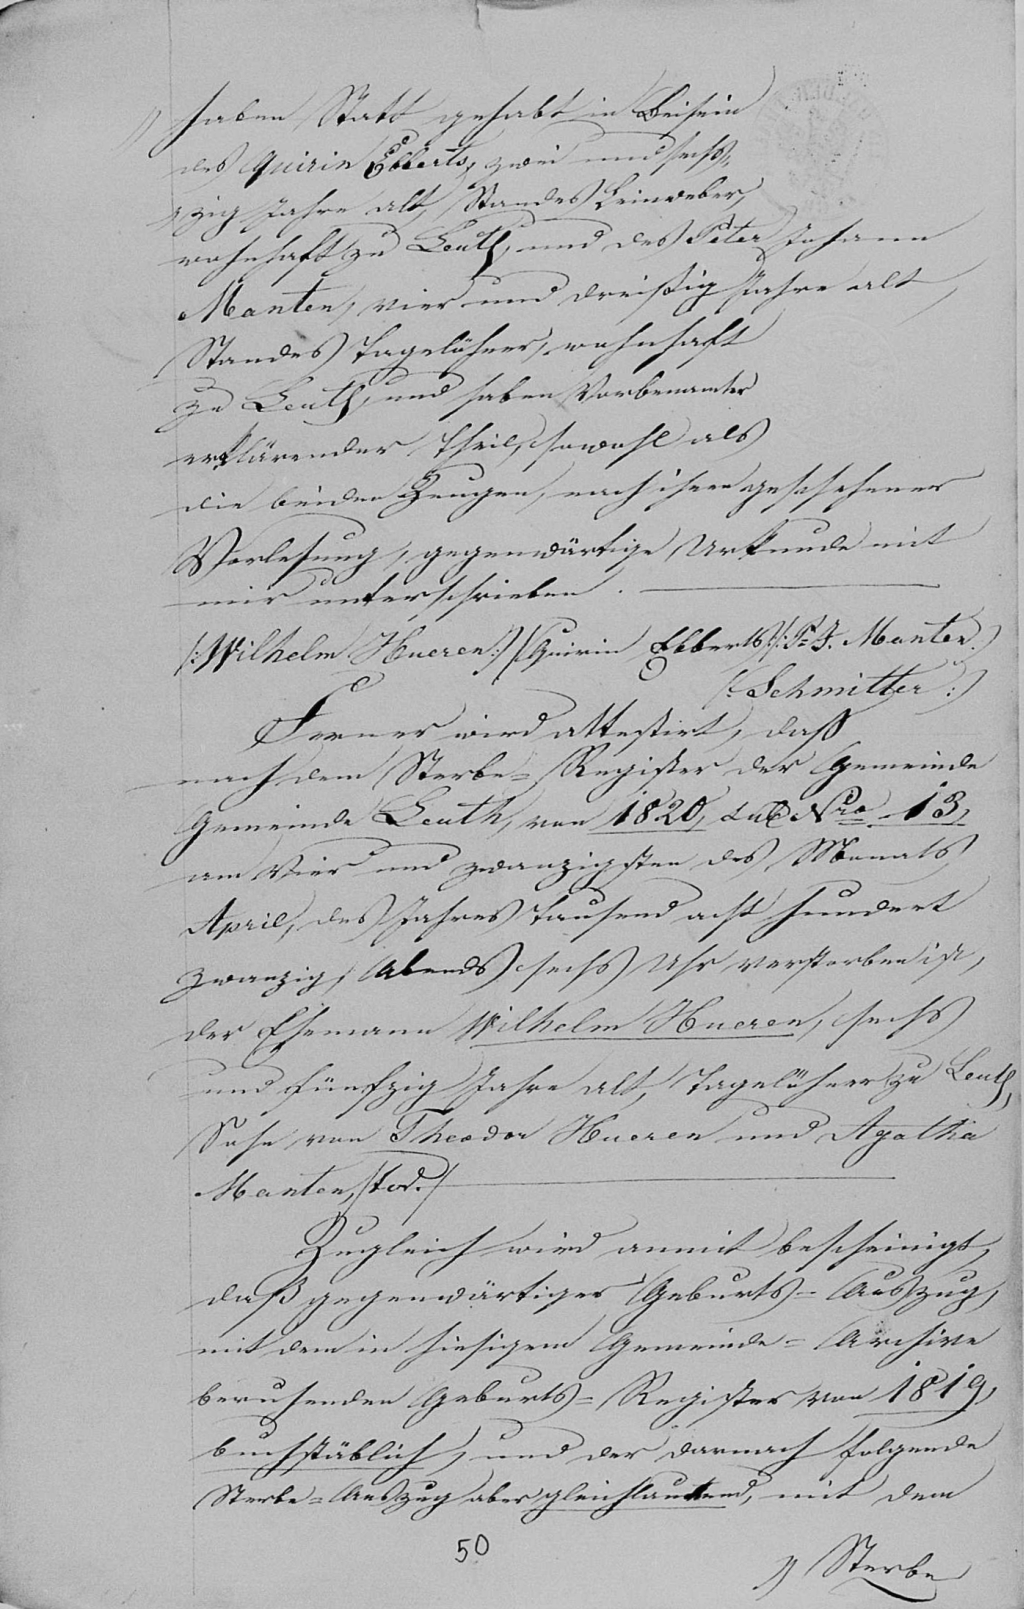 haben Statt gehabt in Beisein
des Quirin Ebberts, zwei und sechs-
zig Jahre alt, Standes Leinweber,
wohnhaft zu Leuth, und des Peter Johann
Manten, vier und dreißig Jahre alt,
Standes Tagelöhner, wohnhaft
zu Leuth, und haben Vorbenannter
erklärender Theil, sowohl als
die beiden Zeugen, nach ihnen geschehener
Vorlesung, gegenwärtige Urkunde mit
mir unterschrieben.
(: Wilhelm Hueren :) (: Quirin Ebberts :) (: P. J. Manten :)
(: Schmitter :)
Ferner wird attestirt, daß
nach dem Sterbe=Register der Gemeinde
Gemeinde Leuth, von 1820, sub Nro 13,
am vier und zwanzigsten des Monats
April, des Jahres tausend acht hundert
zwanzig, Abends sechs Uhr verstorben ist,
der Ehemann Wilhelm Hueren, sechs
und fünfzig Jahre alt, Tagelöhner zu Leuth,
Sohn von Theodor Hueren und Agatha
Manten, /:tod:/
Zugleich wird anmit bescheinigt,
daß gegenwärtiger Geburts=Auszug,
mit dem in hiesigem Gemeinde=Archive
beruhenden Geburts=Register von 1819,
buchstäblich, und der darnach folgende
Sterbe=Auszug aber gleichlautend, mit dem
50
Sterbe